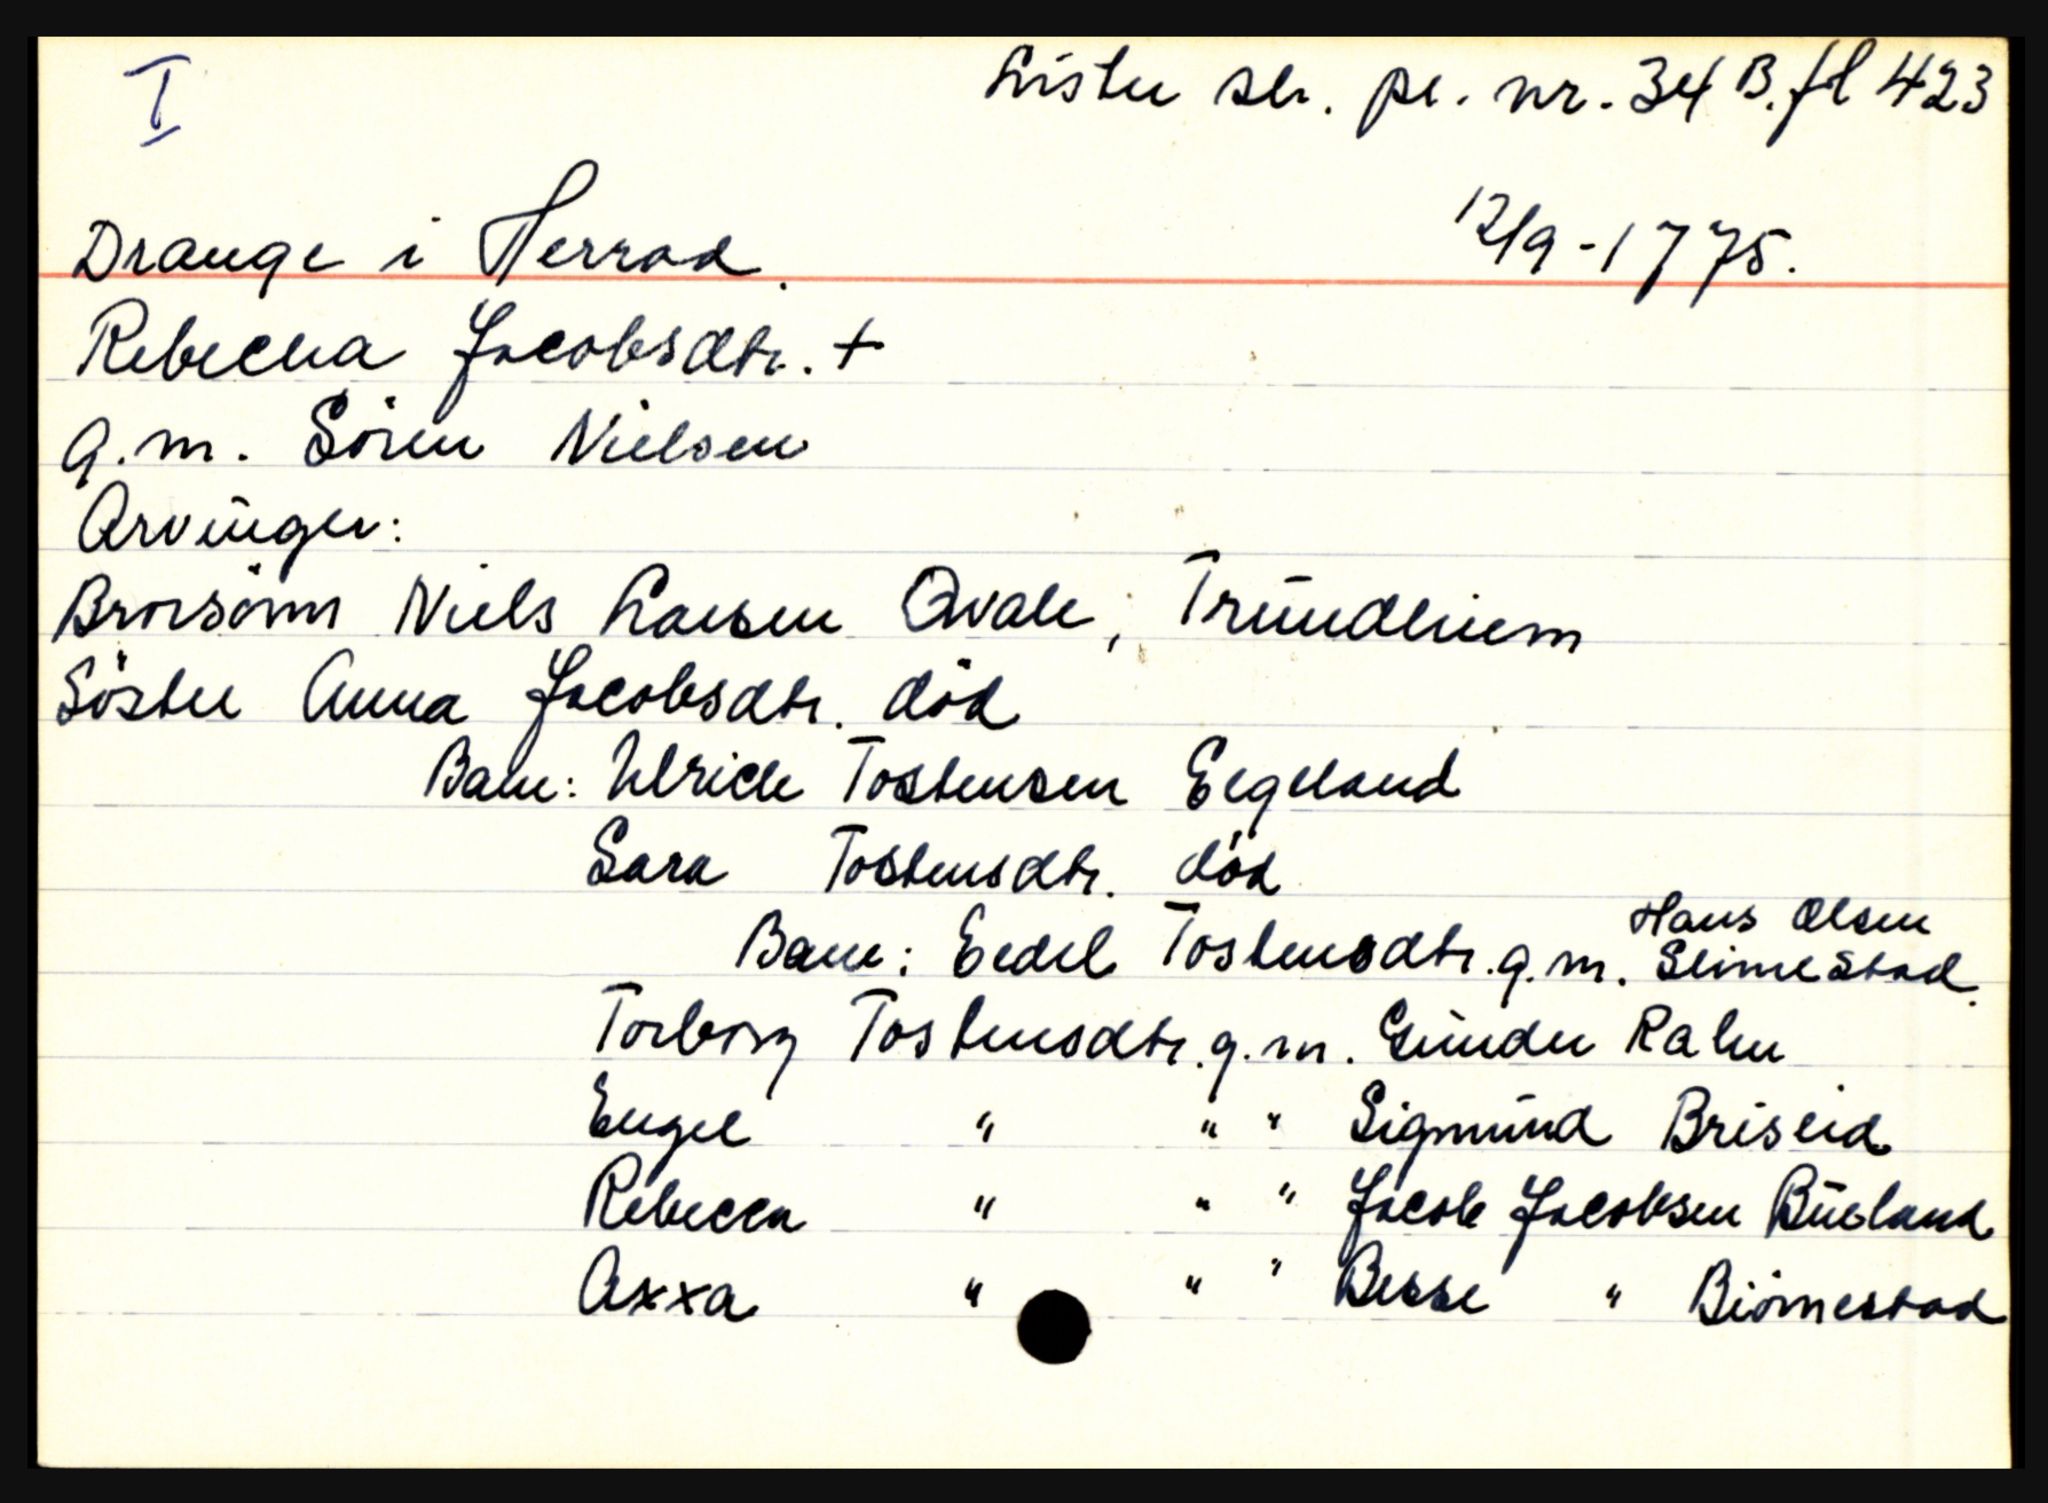 I
Lister skr. pr. nr. 34 B. fl 423
Drange i Herrad.
12/9-1775.
Rebecha Jacobsdtr. +
g.m. Sören Nielsen
Arvinger:
Brorsönn Niels Larsen Qvale, Trundhiem
Söster Anna Jacobsdtr. död
Barn: Ulrich Tostensen Eegeland
Sara Tostensdtr. död
Barn: Eedel Tostensdtr. g.m. Hans Olsen Slimestad.
Torborg Tostensdtr. g.m. Gunder Ralen
Engel " " " Sigmund Briseid
Rebecca " " " Jacob Jacobsen Bueland
Axxa " " " Besse " Biörnestad